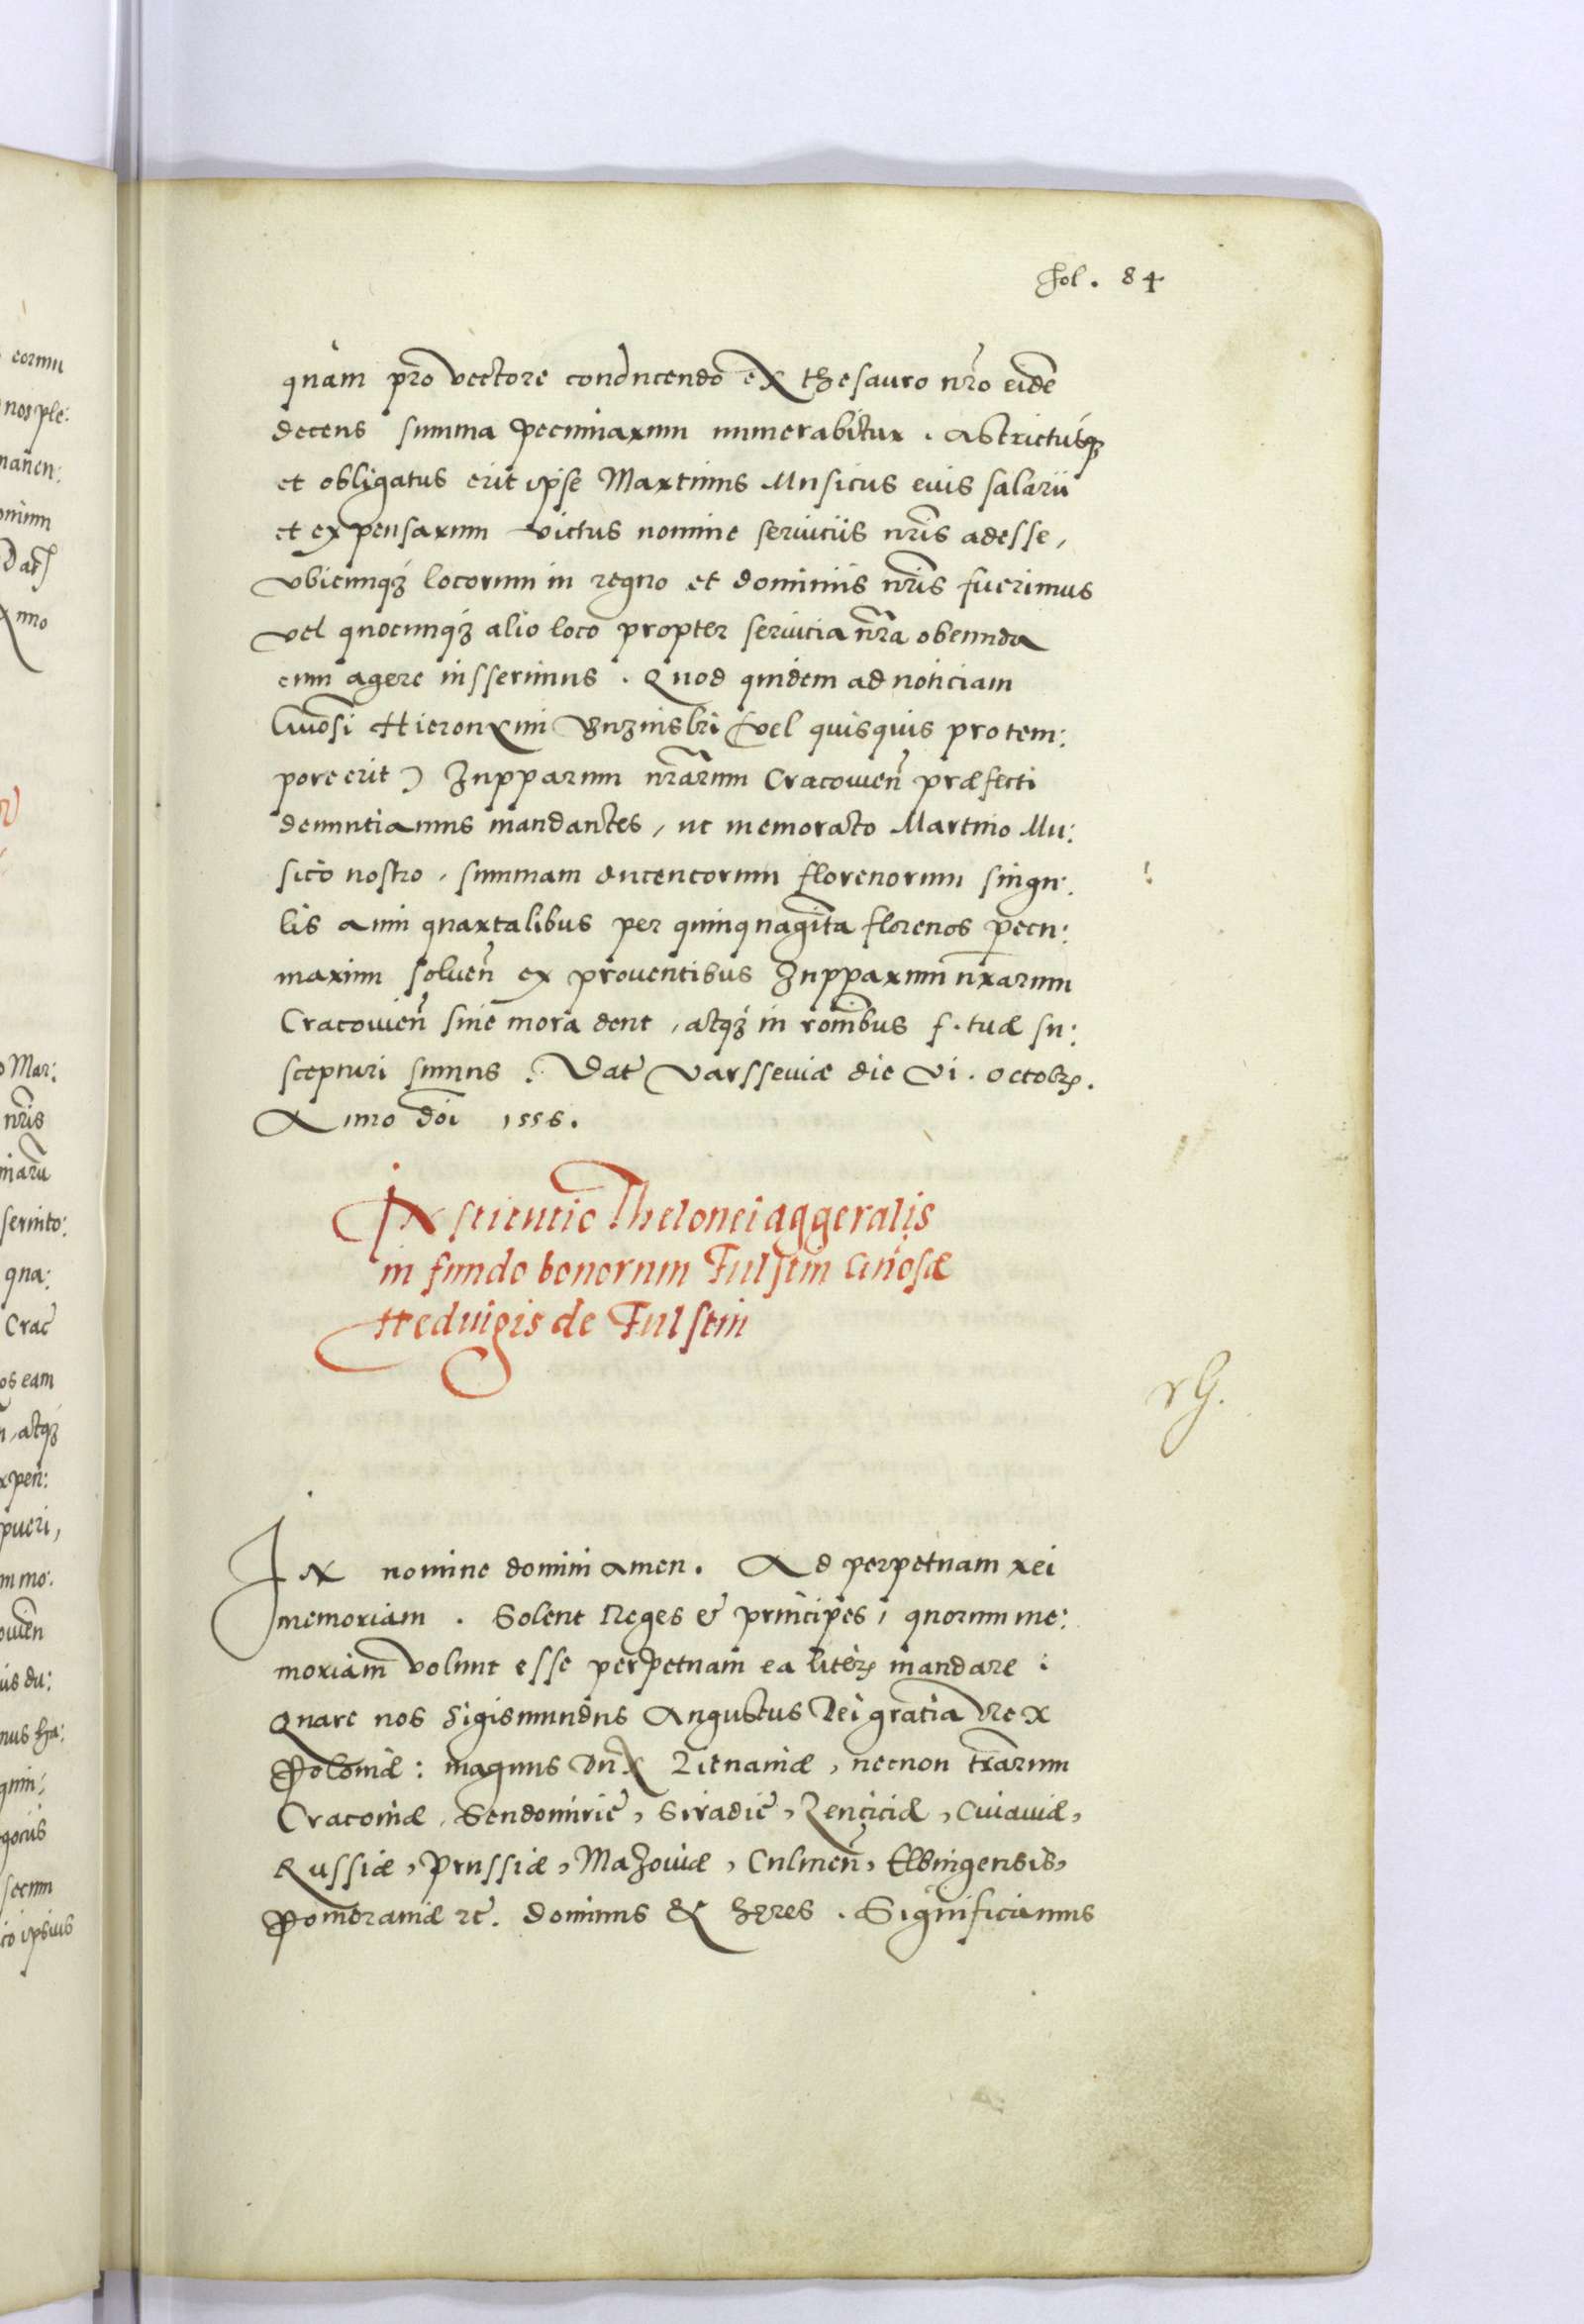 Fol. 84
quàm pro vectore conducendo ex thesauro nr̃o eidẽ
decens summa pecuniarum numerabitur. Astrictusq́;
et obligatus erit ipse Martinus Musicus eius salarii
et expensarum victus nomine seruiciis nr̃is adesse,
vbicunq́; locorum in regno et dominiis nr̃is fuerimus
vel quocunq́; alio loco propter seruitia nr̃a obeunda
eum agere iusserimus. Quod quidem ad noticiam
Gñosi Hieronymi (vel quisquis pro tem:
pore erit) Zupparum nr̃arum Cracouieñ præfecti
denuntiamus mandantes, ut memorato Martino Mu:
sico nostro, summam ducentorum florenorum singu:
lis anni quartalibus per quinquaginta florenos pecu:
niarum solueñ ex prouentibus Zupparum nr̃arum
Cracouieñ sine mora dent, atq́; in rõnibus f. tuæ su:
scepturi sumus. Dat Varsseuiæ die VI. Octobr.
Anno dõi 1556.
Institutio Thelonei aggeralis
in fundo bonorum Fulstin Gñosæ
Heduigis de Fulstin
In nomine domini amen. Ad perpetuam rei
memoriam. Solent Reges & principes, quorum me:
moriam volunt esse perpetuam ea liter̃ mandare:
Quare nos Sigismundus Augustus Dei gratia Rex
Poloniæ: magnus Dux Lituaniæ, necnon tr̃arum
Cracouiæ, Sendomirie, Siradie, Lenciciæ, Cuiauiæ,
Russiæ, Prussiæ, Mazouiæ, Culmeñ, Elbingensis,
Pomeraniæ zc̃. dominus & hæres. Significamus